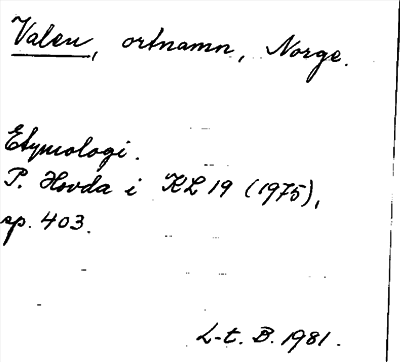 Valen, ortnamn, Norge.
Etymologi.
P. Hovda i KL 19 (1975),
sp. 403.
L-t. B. 1981.